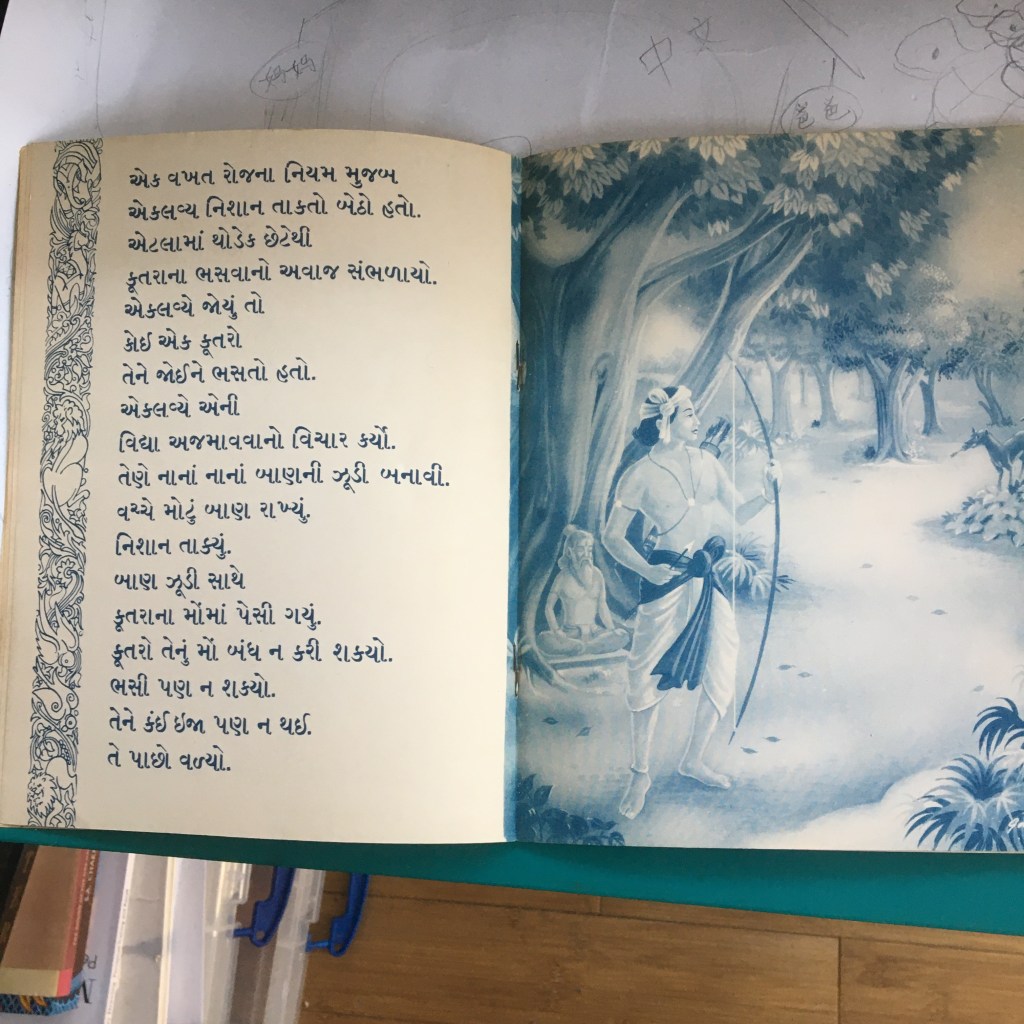 妈妈
中文
爸爸
એક વખત રોજના નિયમ મુજબ
એકલવ્ય નિશાન તાકતો બેઠો હતો.
એટલામાં થોડેક છેટેથી
કૂતરાના ભસવાનો અવાજ સંભળાયો.
એકલવ્યે જોયું તો
કોઈ એક કૂતરો
તેને જોઈને ભસતો હતો.
એકલવ્યે એની
વિદ્યા અજમાવવાનો વિચાર કર્યો.
તેણે નાનાં નાનાં બાણની ઝૂડી બનાવી.
વચ્ચે મોટું બાણ રાખ્યું.
નિશાન તાક્યું.
બાણ ઝૂડી સાથે
કૂતરાના મોંમાં પેસી ગયું.
કૂતરો તેનું મોં બંધ ન કરી શકયો.
ભસી પણ ન શકયો.
તેને કંઈ ઇજા પણ ન થઈ.
તે પાછો વળ્યો.